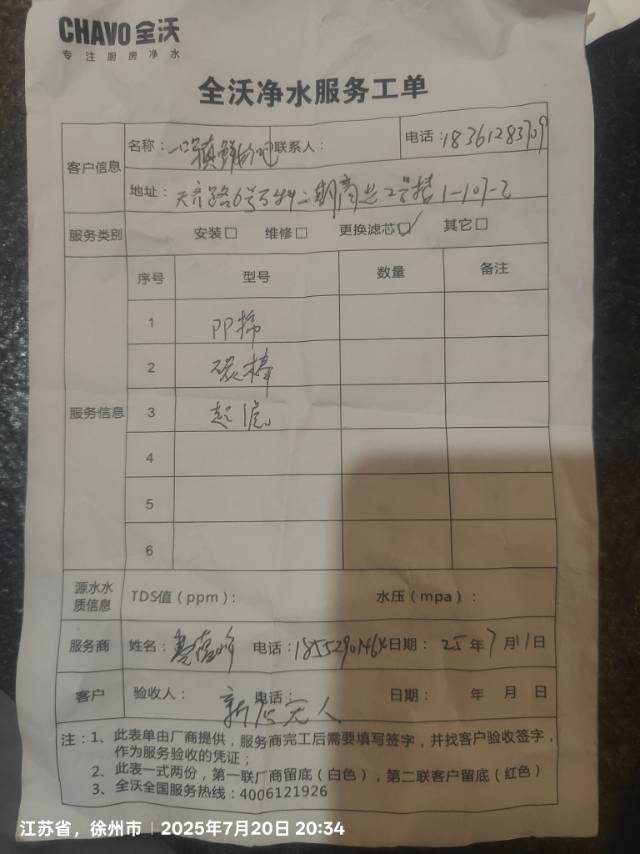 CHAVO全沃
专注厨房净水
全沃净水服务工单
客户信息
名称： 联系人： 电话：18361283709
地址： 路6号万科二期商业2号楼1-107-2
服务类别 安装□ 维修□ 更换滤芯☑ 其它□
服务信息
序号 型号 数量 备注
1 PP棉
2 碳棒
3 超滤
4
5
6
源水水质信息 TDS值（ppm）： 水压（mpa）：
服务商 姓名： 电话： 日期：25年7月11日
客户 验收人：新店无人 电话： 日期： 年 月 日
注：1、此表单由厂商提供，服务商完工后需要填写签字，并找客户验收签字，
作为服务验收的凭证；
2、此表一式两份，第一联厂商留底（白色），第二联客户留底（红色）
3、全沃全国服务热线：4006121926
江苏省，徐州市 2025年7月20日 20:34